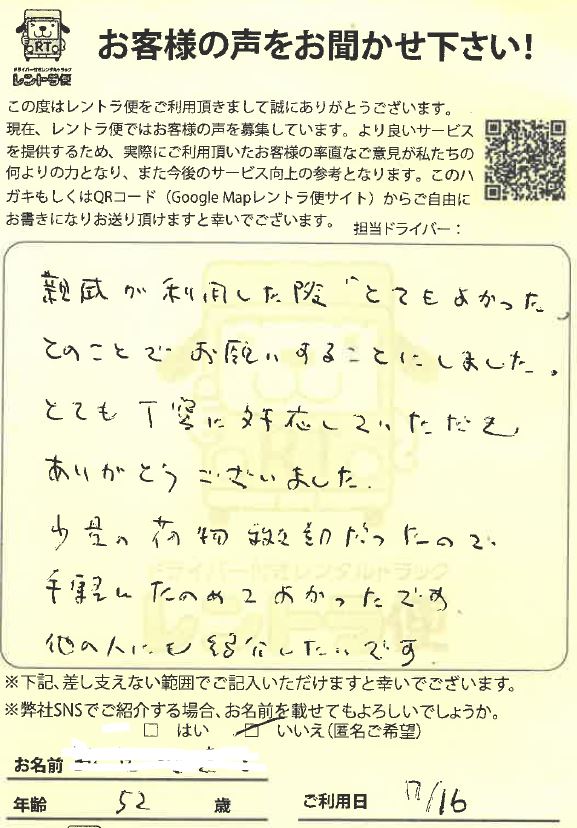 RT
ドライバー付きレンタルトラック
レントラ便
お客様の声をお聞かせ下さい!
この度はレントラ便をご利用頂きまして誠にありがとうございます。
現在、レントラ便ではお客様の声を募集しています。より良いサービス
を提供するため、実際にご利用頂いたお客様の率直なご意見が私たちの
何よりの力となり、また今後のサービス向上の参考となります。このハ
ガキもしくはQRコード（Google Mapレントラ便サイト）からご自由に
お書きになりお送り頂けますと幸いでございます。
担当ドライバー：
親戚が利用した際"とてもよかった"
とのことでお願いすることにしました。
とても丁寧に対応していただき
ありがとうございました.
少量の荷物移動だったので
手軽にたのめてよかったです
他の人にも紹介したいです
ドライバー付きレンタルトラック
レントラ便
※下記、差し支えない範囲でご記入いただけますと幸いでございます。
※弊社SNSでご紹介する場合、お名前を載せてもよろしいでしょうか。
□ はい □ いいえ(匿名ご希望)
お名前
年齢 52 歳 ご利用日 /16